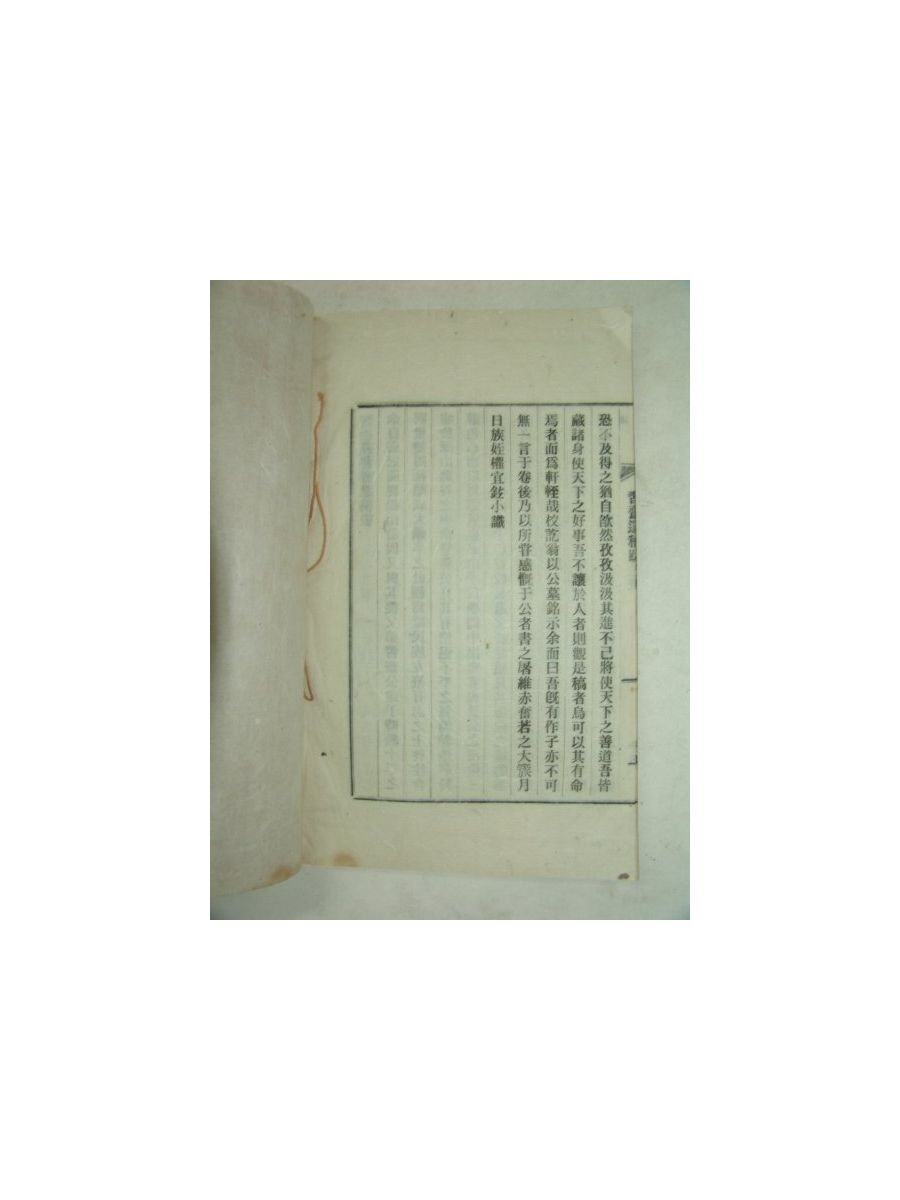 恐不及得之猶自欿然孜孜汲汲其進不已將使天下之善道吾皆
藏諸身使天下之好事吾不讓於人者則觀是稿者烏可以其有命
焉者而爲軒輊哉校訖翁以公墓銘示余而曰吾旣有作子亦不可
無一言于卷後乃以所嘗感慨于公者書之屠維赤奮若之大淵月
日族姪權宜鉉小識